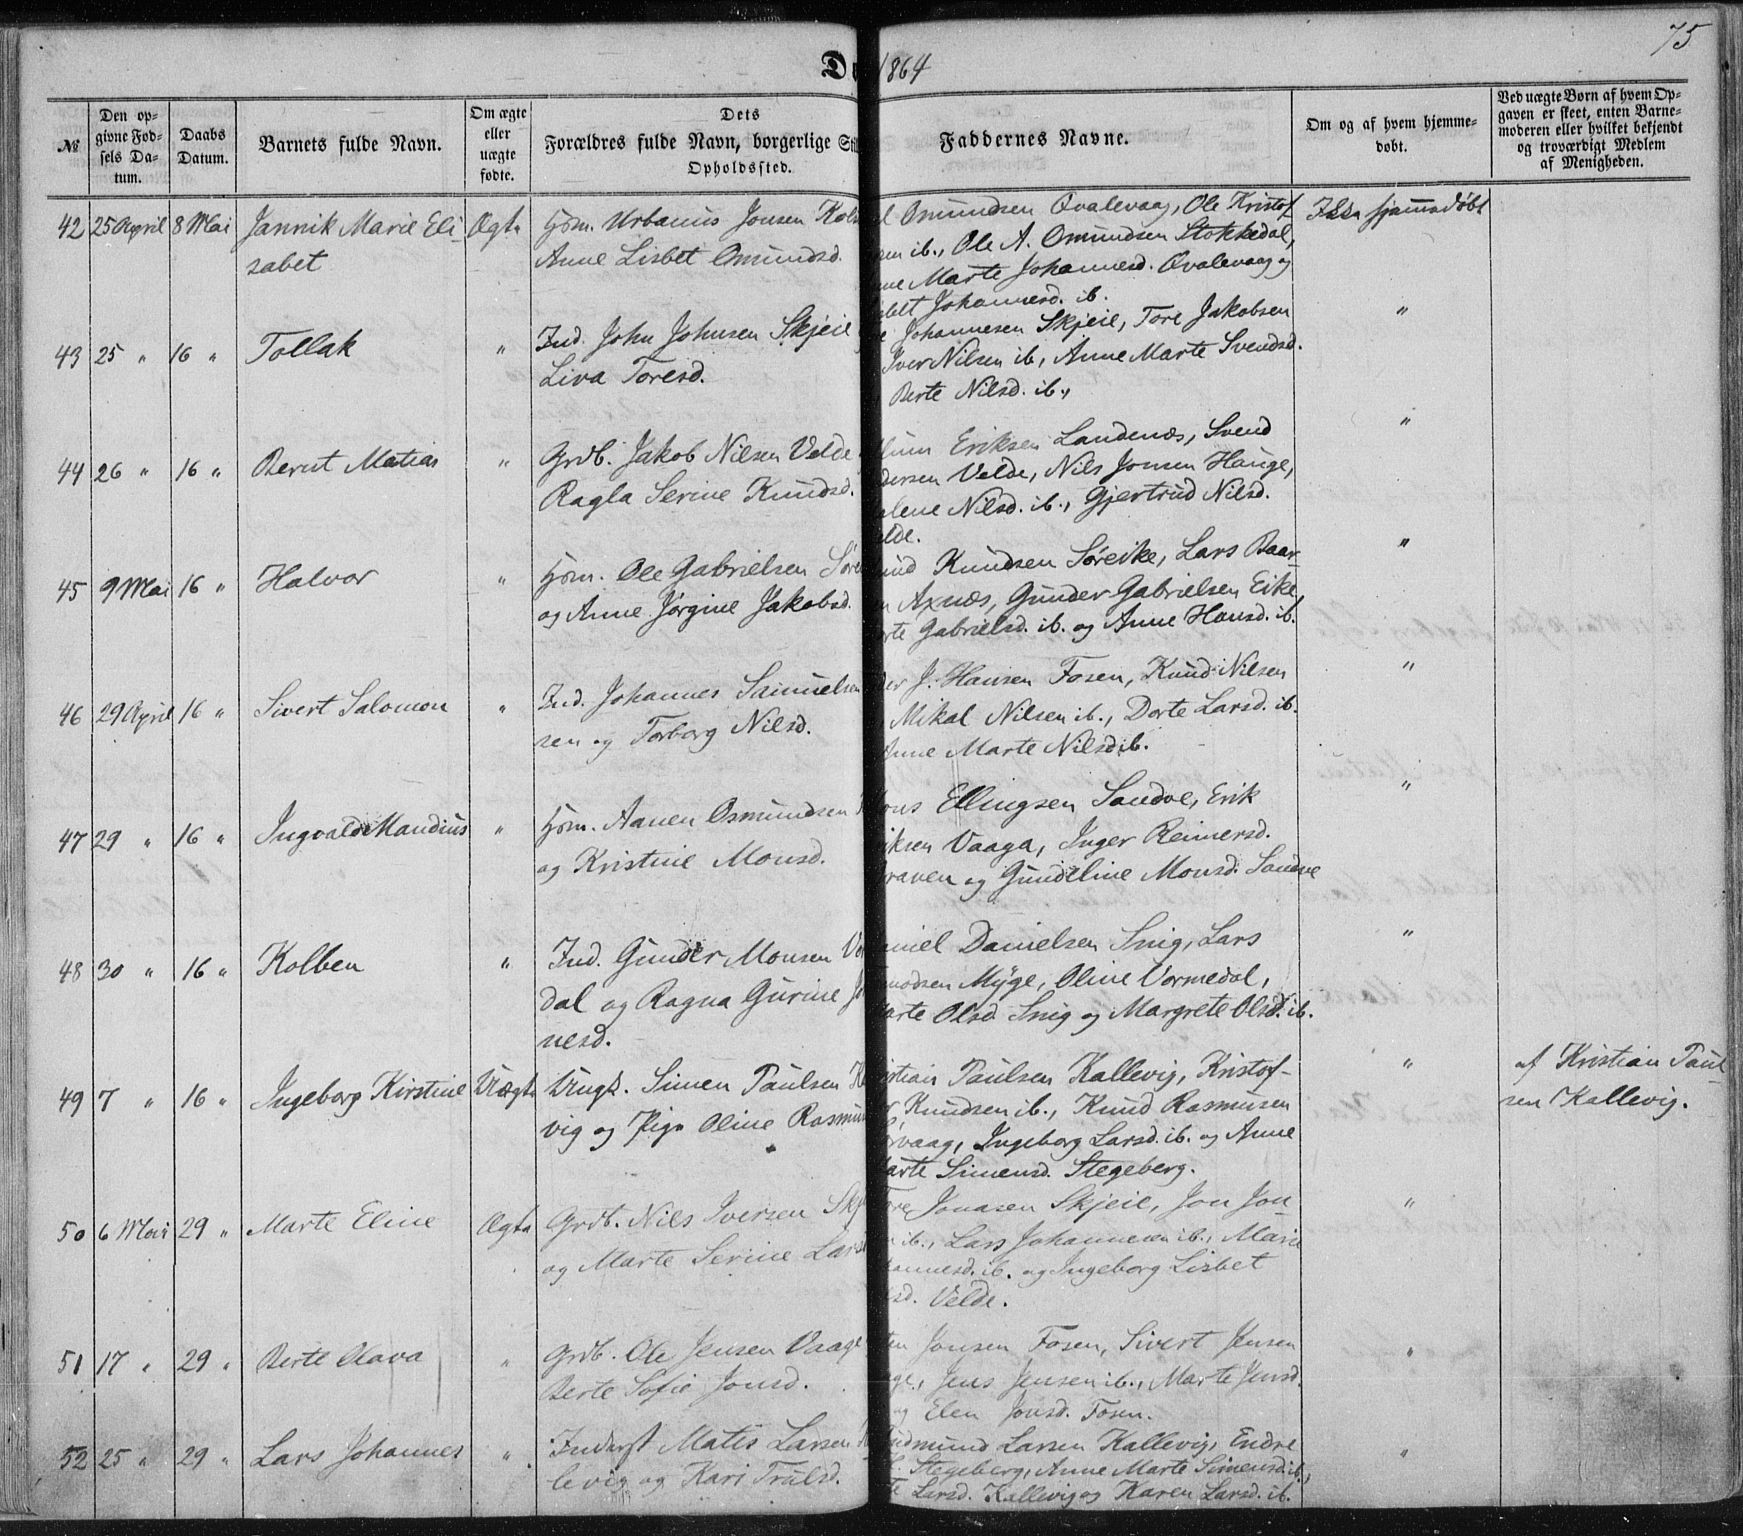 75
1864
№
Den op-
givne Fød-
sels Da-
tum.
Daabs
Datum.
Barnets fulde Navn.
Om ægte
eller
uægte
fødte.
Dets
Forældres fulde Navn, borgerlige
Opholdssted.
Faddernes Navne.
Om og af hvem hjemme-
døbt.
Ved uægte Børn af hvem Op-
gaven er skeet, enten Barne-
moderen eller hvilket bekjendt
og troværdigt Medlem
af Menigheden.
42 25 April 8 Mai Jannik Marie Eli- Ægte Hsm. Urbanus Jonsen
sabet Anne Lisbet Omundsd.
Omundsen Qvalevaag, Ole Kristof-
sen ib., Ole A. Omundsen Stokkedal,
Marte Johannesd. Qvalevaag og
Johannesd. ib.
Ikke hjemmedøbt
43 25 " 16 " Tollak " Ind. John Johnsen Skjeie
Liva Toresd.
Johannesen Skjeie, Tore Jakobsen
Iver Nilsen ib., Anne Marte Svendsd.
Berte Nilsd. ib.,
"
44 26 " 16 " Bernt Matias " Grdb. Jakob Nilsen Velde
Ragla Serine Knudsd.
Eriksen Landenæs, Svend
Velde, Nils Jonsen Hauge,
Nilsd. ib., Gjertrud Nilsd.
"
45 9 Mai 16 " Halvor " Hsm. Ole Gabrielsen
og Anne Jørgine Jakobsd.
Knudsen Søreike, Lars Baar-
Axnæs, Gunder Gabrielsen Eike,
Gabrielsd. ib. og Anne Hansd. ib.
"
46 29 April 16 " Sivert Salomon " Ind. Johannes Samuelsen
sen og Torborg Nilsd.
J. Hansen Fosen, Knud Nilsen
Mikal Nilsen ib., Dorte Larsd. ib.
Anne Marte Nilsd ib.
"
47 29 " 16 " Ingvald Mandius " Hsm. Aanen Osmundsen
og Kristine Monsd.
Ellingsen Sandve, Erik
Vaaga, Inger Reinersd.
og Gundeline Monsd. Sandve
"
48 30 " 16 " Kolben " Ind. Gunder Monsen
dal og Ragna Gurine
nesd.
Danielsen Snig, Lars
Myge, Oline Vormedal,
Marte Olsd. Snig og Margrete Olsd. ib.
"
49 7 " 16 " Ingeborg Kirstine Uægte Ungk. Simen Paulsen
vig og Pige Oline
Kristian Paulsen Kallevig, Kristof-
Knudsen ib., Knud Rasmusen
Ingeborg Larsd. ib. og Anne
Marte Simensd. Stegeberg.
"
af Kristian Paul-
sen Kallevig.
50 6 Mai 29 " Marte Eline Ægte Grdb. Nils Iversen
og Marte Serine
Tore Jonasen Skjeie, Jon Jon-
ib., Lars Johannesen ib., Marie
ib. og Ingeborg Lisbet
Velde.
"
51 17 " 29 " Berte Olava " Grdb. Ole Jensen Vaage
Berte Sofie Jonsd.
Jonsen Fosen, Sivert Jensen
Jens Jensen ib., Marte Jensd.
og Elen Jonsd. Fosen.
"
52 25 " 29 " Lars Johannes " Inderst Matis Larsen
levig og Kari Trulsd.
Gudmund Larsen Kallevig, Endre
Stegeberg, Anne Marte Simensd. ib.,
Larsd. Kallevig og Karen Larsd. ib.
"